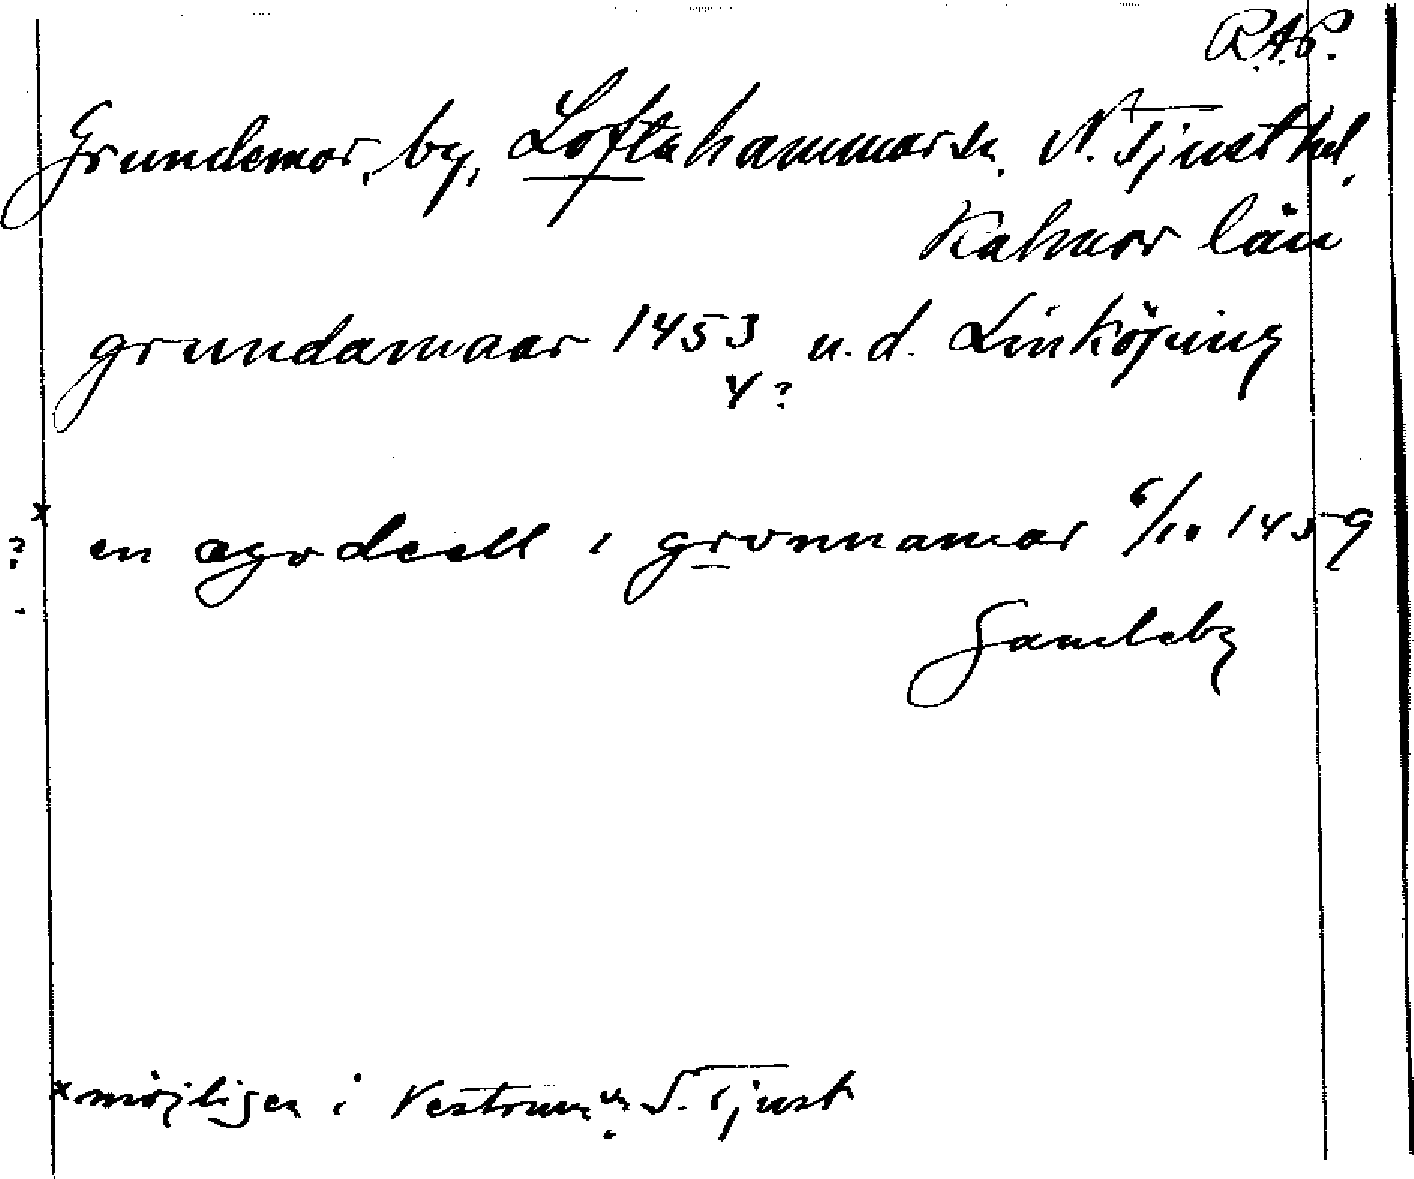 R.A.P.
Grundemar, by, Loftahammar sn. N. Tjust hd.
Kalmar län
grundamaar 1453 u. d. Linköping
4 ?
x
? en ægodeell i gronnamar 6/10 1459
Gamleby
x möjligen i Vestrum sn. S. Tjust